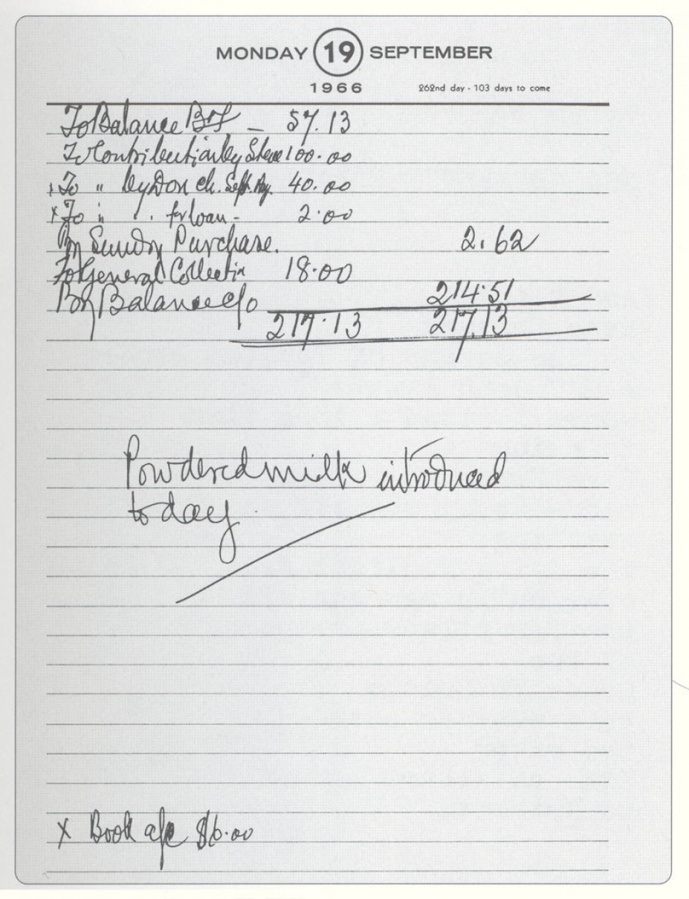 MONDAY 19 SEPTEMBER
1966 262nd day - 103 days to come
To Balance B/f — 57.13
To Contribution by 100.00
x To " by Don ch. 40.00
x To " " for loan - 2.00
By Sundry Purchase. 2.62
To General Collectin 18.00
By Balance c/o 214.51
217.13 217.13
Powdered milk introduced
today
x Book a/c $6.00